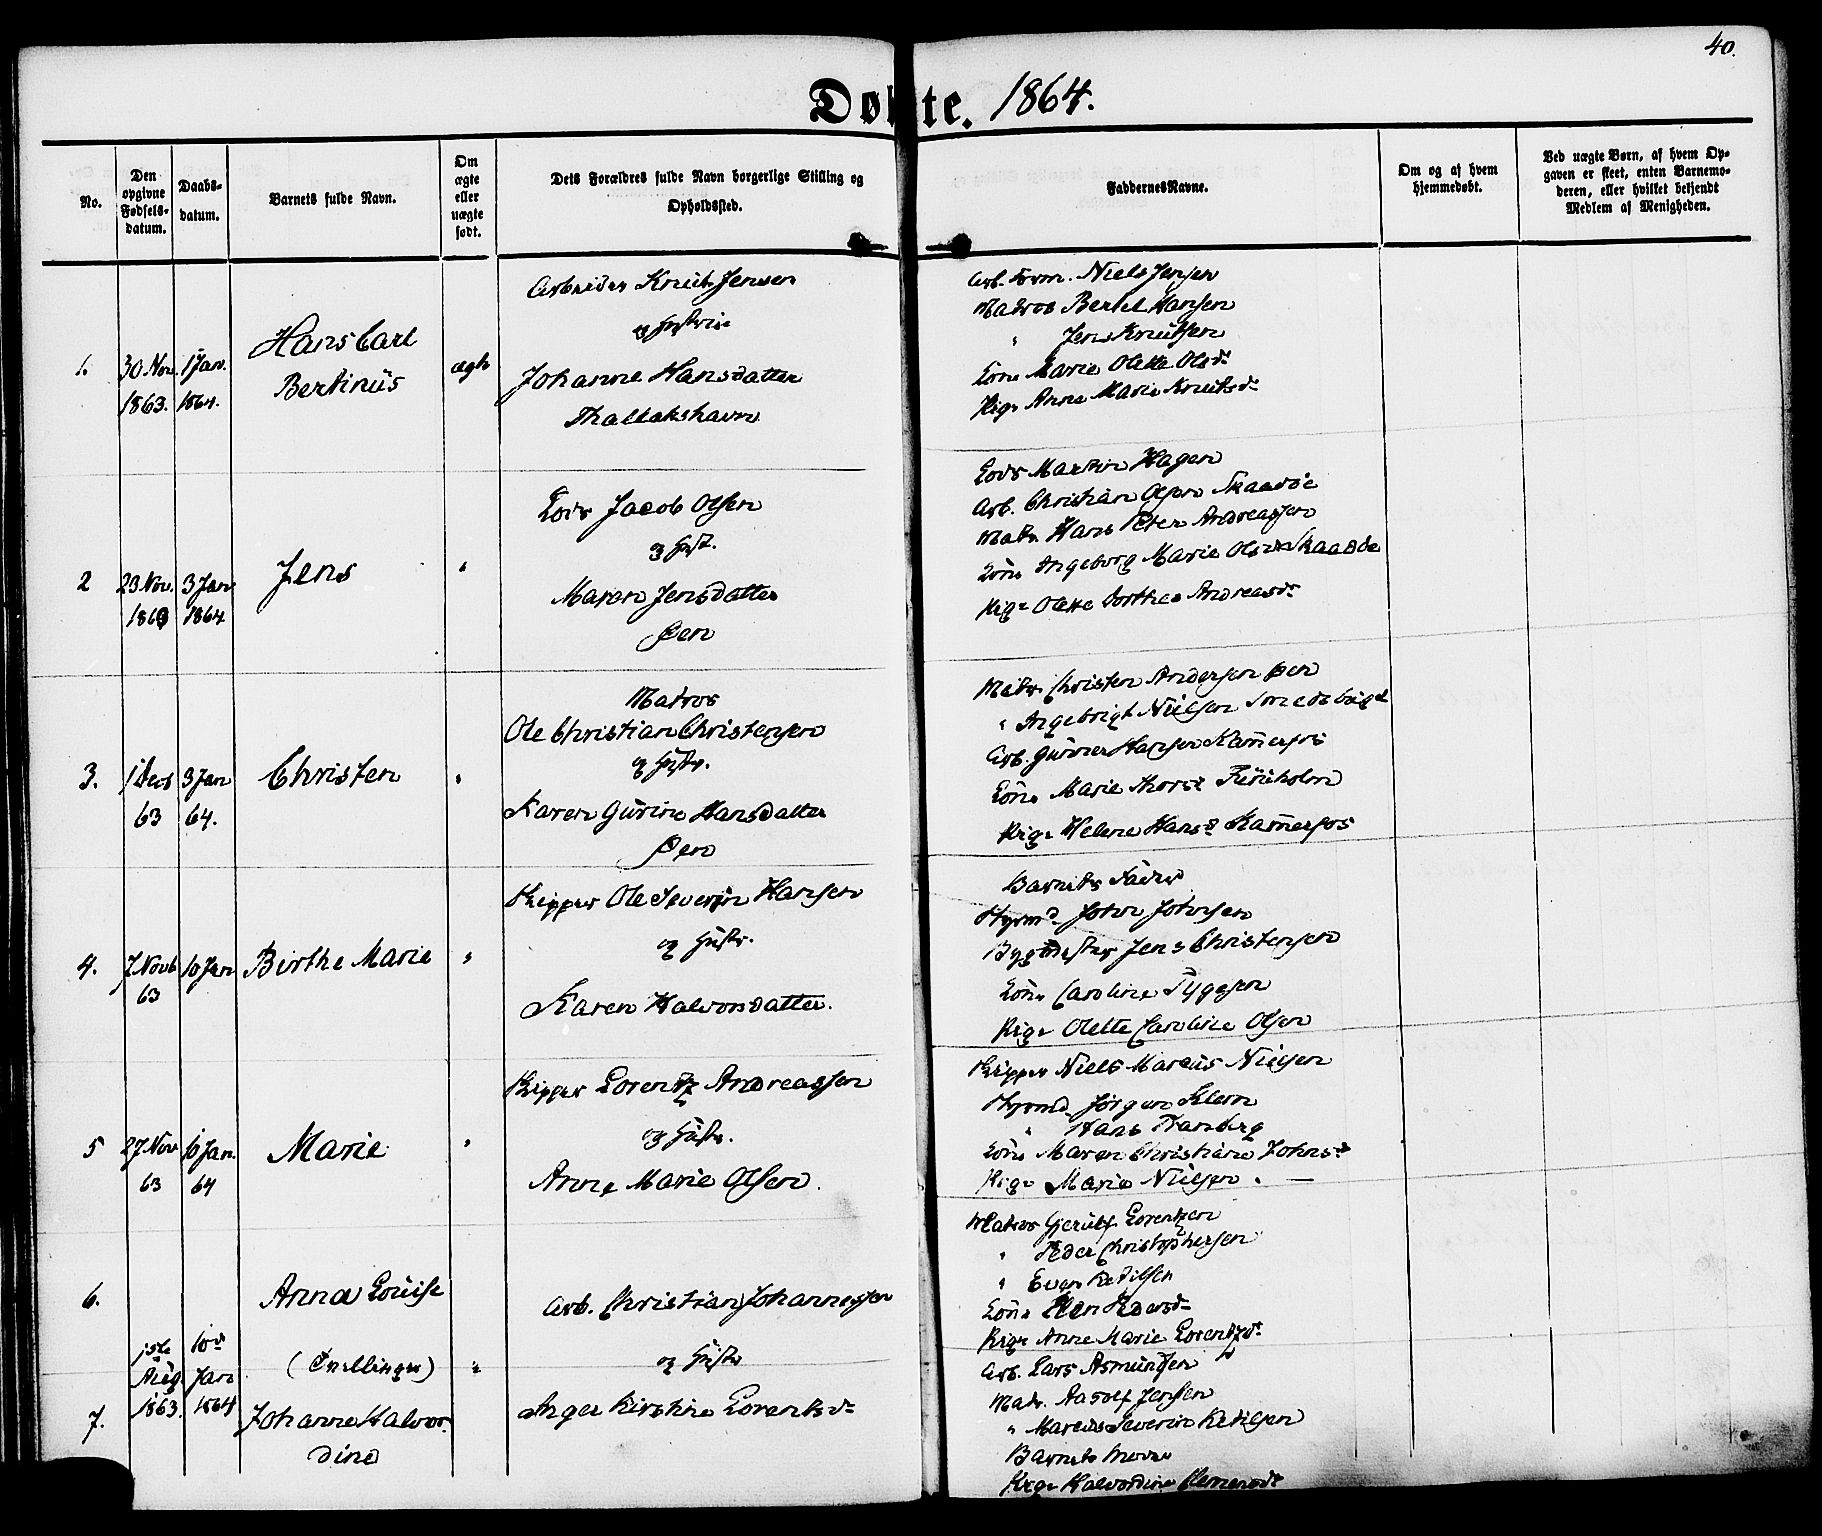 40.
Døbte. 1864.
No.
Den opgivne Fødsels-datum.
Daabs-datum.
Barnets fulde Navn.
Om ægte eller uægte født.
Dets Forældres fulde Navn borgerlige Stilling og Opholdssted.
FaddernesNavne.
Om og af hvem hjemmedøbt.
Ved uægte Børn, af hvem Op-
gaven er skeet, enten Barnemo-
deren, eller hvilket bekjendt
Medlem af Menigheden.
1.
30 Nov.
1863.
1 Jan.
1864.
Hans Carl
Bertinus
ægte
Arbeider Knut Jensen
og Hustrue
Johanne Hansdatter
Thallakshavn
Arb. Form. Niels Jensen
Matros Bertel Hansen
" Jens Knutsen
Kone Marie Olette Olsdr
Pige Anne Marie Knutsdr
2
23 Nov.
1863
3 Jan
1864
Jens
"
Lods Jacob Olsen
og Hust.
Maren Jensdatter
Øen
Lods Martin Hagen
Arb. Christian Olsen Skaadøe
Matr. Hans Peter Andreassen
Kone Ingeborg Marie Olsdr Skaadøe
Pige Olette Dorthea Andreasdr
3.
1 Decb
63
3 Jan
64.
Christen
"
Matros
Ole Christian Christensen
og Hustr.
Karen Gurine Hansdatter
Øen
Matr. Christen Andersen Øen
" Ingebrigt Nielsen
Arb. Gunner Hansen
Kone Marie Thorsd
Pige Helene Hansd
4.
7 Novb
63
10 Jan
Birthe Marie
"
Skipper Ole Severin Hansen
og Hustr.
Karen Halvorsdatter.
Barnets Fader
Styrmd John Johnsen
Bygmester Jens Christensen
Kone Caroline Tyggesen
Pige Olette Caroline Olsen
5
27 Nov
63
10 Jan.
64
Marie
"
Skipper Lorentz Andreassen
og Hustr.
Anne Marie Olsen.
Skipper Niels Marcus Nielsen
Styrmd Jørgen Klem
" Hans
Kone Maren Christiane Johnsd
Pige Marie Nielsen. —
6.
Anna Louise
Arb. Christian Johannessen
Matros Gjerulf Lorentzen
" Peder Christophersen
" Even Ketilsen
Kone Ellen Pedersdr
Pige Anne Marie Lorentzdr
15de
Aug.
1863.
10de
Jan
1864
(Tvillinger)
"
og Hustr
7.
Johanne Halvor-
dine
Inger Kirstine Lorentsdr
Arb. Lars Asmundsen
Matr. Aadolf Jensen
" Marcus Severin Ketilsen
Barnets Moder
Pige Halvordine